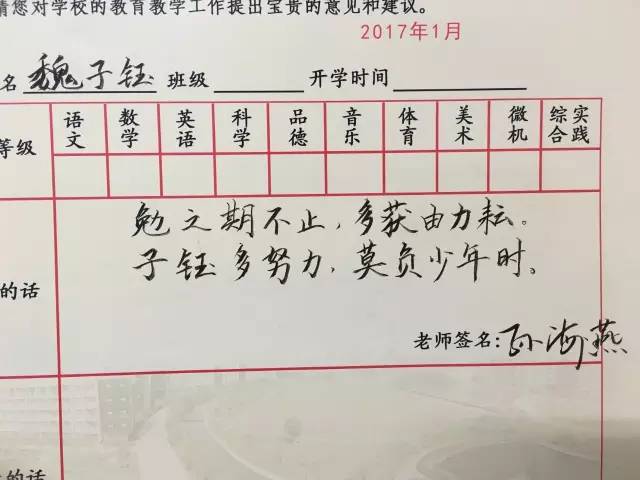 请您对学校的教育教学工作提出宝贵的意见和建议。
2017年1月
名 魏子钰 班级 开学时间
等级 语文 数学 英语 科学 品德 音乐 体育 美术 微机 综合实践
勉之期不止，多获由力耘。
子钰多努力，莫负少年时。
的话
老师签名:孙海燕
的话